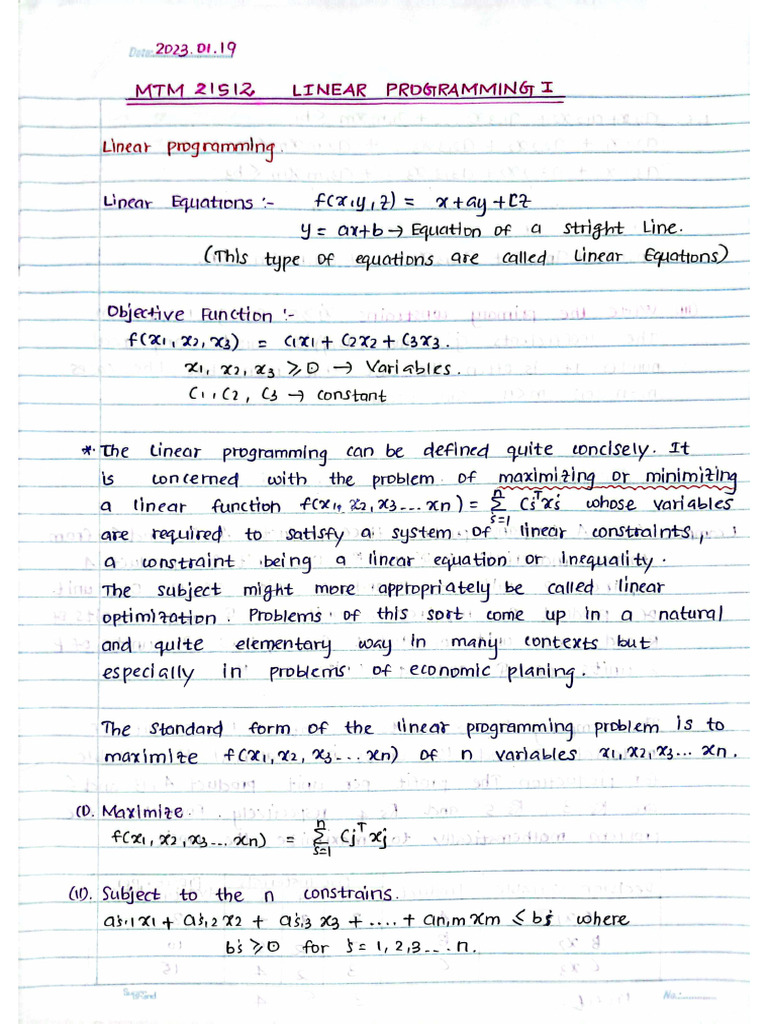 Date: 2023.01.19
MTM 21512 LINEAR PROGRAMMING I
Linear programming.
Linear Equations :- f(x,y,z) = x+ay+cz
y = ax+b → Equation of a stright Line.
(This type of equations are called Linear Equations)
Objective Function :-
f(x1, x2, x3) = c1x1 + c2x2 + c3x3.
x1, x2, x3 ≥ 0 → Variables.
c1, c2, c3 → constant
*. The linear programming can be defined quite concisely. It
is concerned with the problem of maximizing or minimizing
a linear function f(x1, x2, x3... xn) = Σ(j=1 to n) cj^T xj whose variables
are required to satisfy a system of linear constraints,
a constraint being a linear equation or inequality.
The subject might more appropriately be called linear
optimization. Problems of this sort come up in a natural
and quite elementary way in many contexts but
especially in problems of economic planing.
The standard form of the linear programming problem is to
maximize f(x1, x2, x3... xn) of n variables x1, x2, x3... xn.
(I). Maximize.
f(x1, x2, x3... xn) = Σ(j=1 to n) cj^T xj
(II). Subject to the n constrains.
aj,1 x1 + aj,2 x2 + aj,3 x3 + .... + an,m xm ≤ bj where
bj ≥ 0 for j = 1, 2, 3... n.
No: